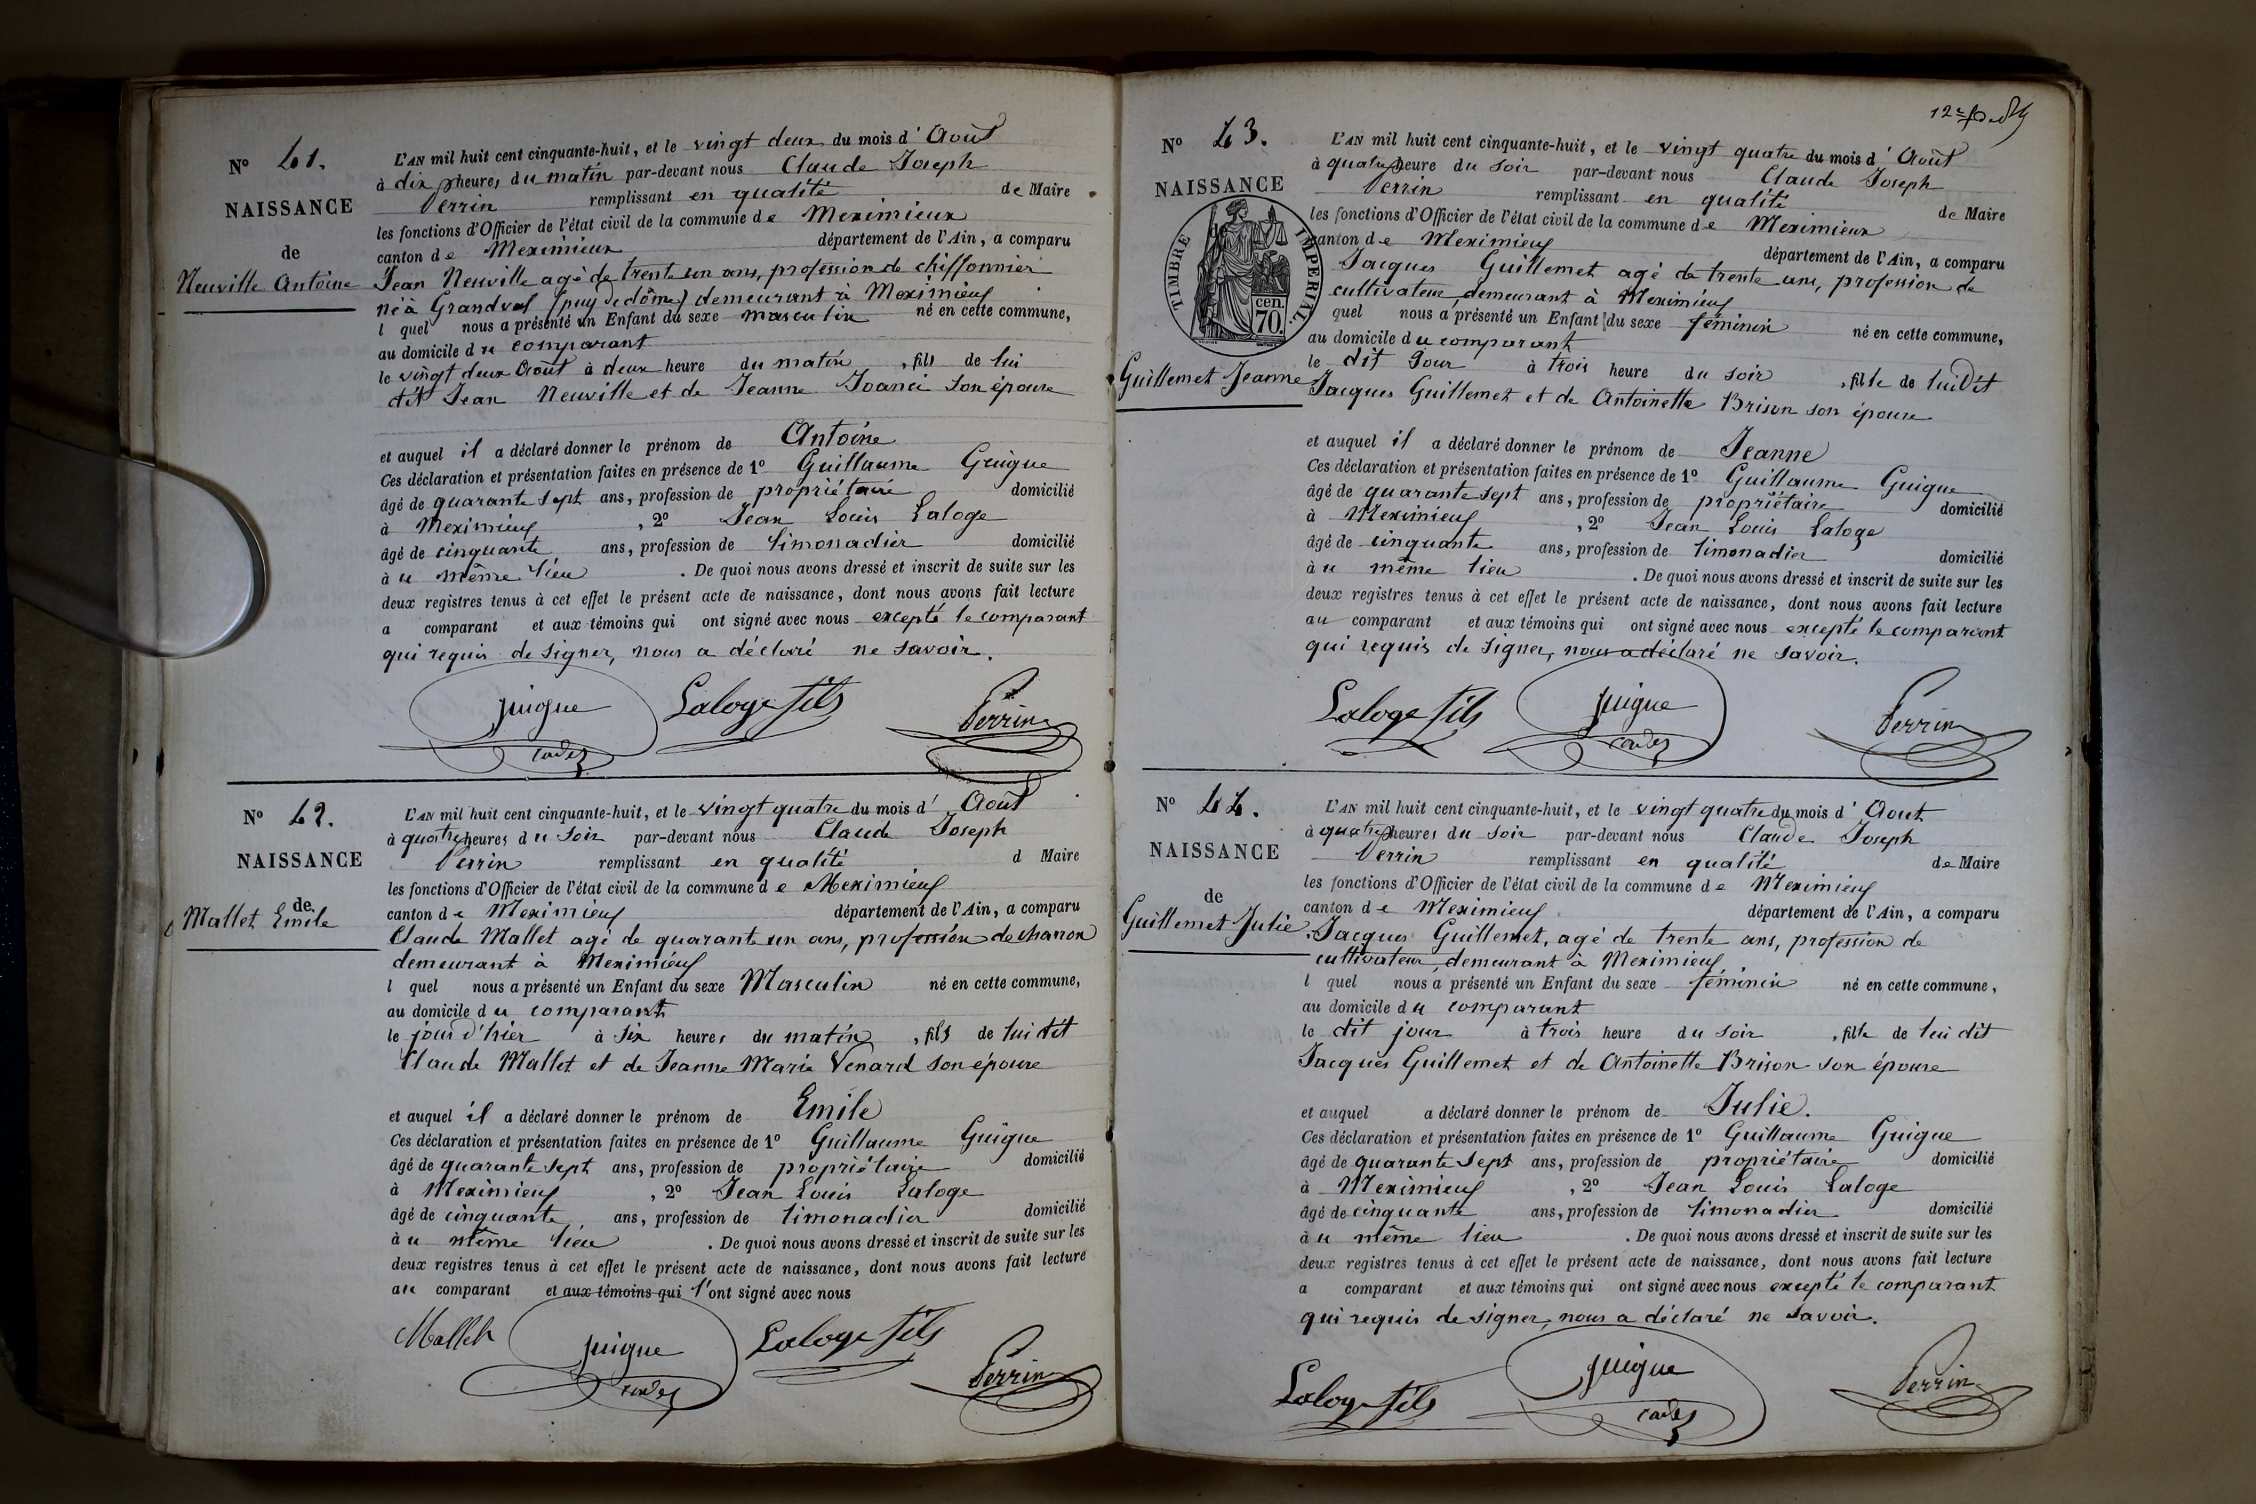 N° 41.
NAISSANCE
de
Neuville Antoine
L'AN mil huit cent cinquante-huit, et le vingt deux du mois d' Août
à dix heures du matin par-devant nous Claude Joseph
Perrin remplissant en qualité de Maire
les fonctions d'Officier de l'état civil de la commune de Meximieux
canton de Meximieux département de l'Ain, a comparu
Jean Neuville agé de trente un ans, profession de chiffonnier
né à Grandval (puy de dôme) demeurant à Meximieux
l quel nous a présenté un Enfant du sexe masculin né en cette commune,
au domicile du comparant
le vingt deux Août à deux heure du matin, fils de lui
dit Jean Neuville et de Jeanne Joanei son épouse
et auquel il a déclaré donner le prénom de Antoine
Ces déclaration et présentation faites en présence de 1° Guillaume Guigue
âgé de quarante sept ans, profession de propriétaire domicilié
à Meximieux, 2° Jean Louis Laloge
âgé de cinquante ans, profession de limonadier domicilié
à u même lieu. De quoi nous avons dressé et inscrit de suite sur les
deux registres tenus à cet effet le présent acte de naissance, dont nous avons fait lecture
a comparant et aux témoins qui ont signé avec nous excepté le comparant
qui requis de signer, nous a déclaré ne savoir.
guigue Laloge fils Perrin
cadet
N° 42.
NAISSANCE
de
Mallet Emile
L'AN mil huit cent cinquante-huit, et le vingt quatre du mois d' Août
à quatre heures du soir par-devant nous Claude Joseph
Perrin remplissant en qualité d Maire
les fonctions d'Officier de l'état civil de la commune de Meximieux
canton de Meximieux département de l'Ain, a comparu
Claude Mallet agé de quarante un ans, profession de charron
demeurant à Meximieux
l quel nous a présenté un Enfant du sexe Masculin né en cette commune,
au domicile du comparant
le jour d'hier à six heures du matin, fils de lui dit
Claude Mallet et de Jeanne Marie Venard son épouse
et auquel il a déclaré donner le prénom de Emile
Ces déclaration et présentation faites en présence de 1° Guillaume Guigue
âgé de quarante sept ans, profession de propriétaire domicilié
à Meximieux, 2° Jean Louis Laloge
âgé de cinquante ans, profession de limonadier domicilié
à u même lieu. De quoi nous avons dressé et inscrit de suite sur les
deux registres tenus à cet effet le présent acte de naissance, dont nous avons fait lecture
au comparant et aux témoins qui l'ont signé avec nous
Mallet guigue Laloge fils Perrin
cadet
N° 43.
NAISSANCE
TIMBRE IMPERIAL.
cen.
70.
Guillemet Jeanne
L'AN mil huit cent cinquante-huit, et le vingt quatre du mois d' Août
à quatre heure du soir par-devant nous Claude Joseph
Perrin remplissant en qualité de Maire
les fonctions d'Officier de l'état civil de la commune de Meximieux
canton de Meximieux département de l'Ain, a comparu
Jacques Guillemet agé de trente ans, profession de
cultivateur, demeurant à Meximieux
quel nous a présenté un Enfant du sexe féminin né en cette commune,
au domicile du comparant
le dit jour à trois heure du soir, fille de lui dit
Jacques Guillemet et de Antoinette Brison son épouse
et auquel il a déclaré donner le prénom de Jeanne
Ces déclaration et présentation faites en présence de 1° Guillaume Guigue
âgé de quarante sept ans, profession de propriétaire domicilié
à Meximieux, 2° Jean Louis Laloge
âgé de cinquante ans, profession de limonadier domicilié
à u même lieu. De quoi nous avons dressé et inscrit de suite sur les
deux registres tenus à cet effet le présent acte de naissance, dont nous avons fait lecture
au comparant et aux témoins qui ont signé avec nous excepté le comparant
qui requis de signer, nous a déclaré ne savoir.
Laloge fils guigue Perrin
cadet
N° 44.
NAISSANCE
de
Guillemet Julie
L'AN mil huit cent cinquante-huit, et le vingt quatre du mois d' Aout
à quatre heures du soir par-devant nous Claude Joseph
Perrin remplissant en qualité de Maire
les fonctions d'Officier de l'état civil de la commune de Meximieux
canton de Meximieux département de l'Ain, a comparu
Jacques Guillemet, agé de trente ans, profession de
cultivateur, demeurant à Meximieux
l quel nous a présenté un Enfant du sexe féminin né en cette commune,
au domicile du comparant
le dit jour à trois heure du soir, fille de lui dit
Jacques Guillemet et de Antoinette Brison son épouse
et auquel a déclaré donner le prénom de Julie.
Ces déclaration et présentation faites en présence de 1° Guillaume Guigue
âgé de quarante sept ans, profession de propriétaire domicilié
à Meximieux, 2° Jean Louis Laloge
âgé de cinquante ans, profession de limonadier domicilié
à u même lieu. De quoi nous avons dressé et inscrit de suite sur les
deux registres tenus à cet effet le présent acte de naissance, dont nous avons fait lecture
a comparant et aux témoins qui ont signé avec nous excepté le comparant
qui requis de signer, nous a déclaré ne savoir.
Laloge fils guigue Perrin
cadet